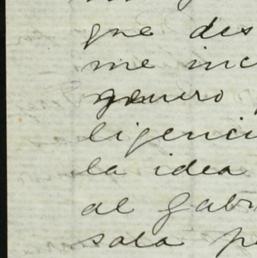 que des
me inc
genero
ligenci
la idea
al gabi
sala pe